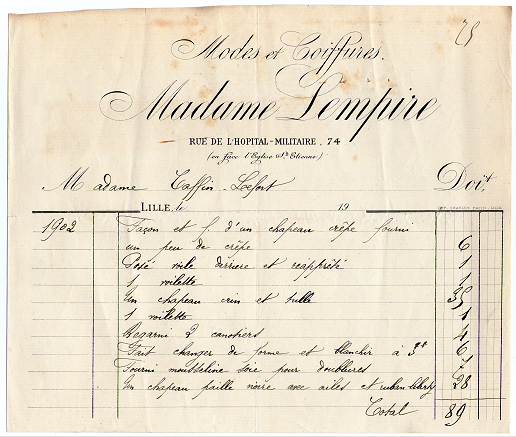 75
Modes et Coiffures.
Madame Lempire
RUE DE L'HOPITAL-MILITAIRE, 74
(en face l'Eglise St Etienne)
Madame Taffin-Lefort Doit
LILLE, le 19
1902 Façon et f. d'un chapeau crêpe fourni
un peu de crêpe 6
Posé voile derriere et réapprêté 1
1 voilette 1
Un chapeau crin et tulle 35
1 voilette 1
Regarni 2 canotiers 4
Fait changer de forme et blanchir à 3f 6
Fourni mousseline soie pour doublures 7
Un chapeau paille noire avec ailes et ruban liberty 28
Total 89